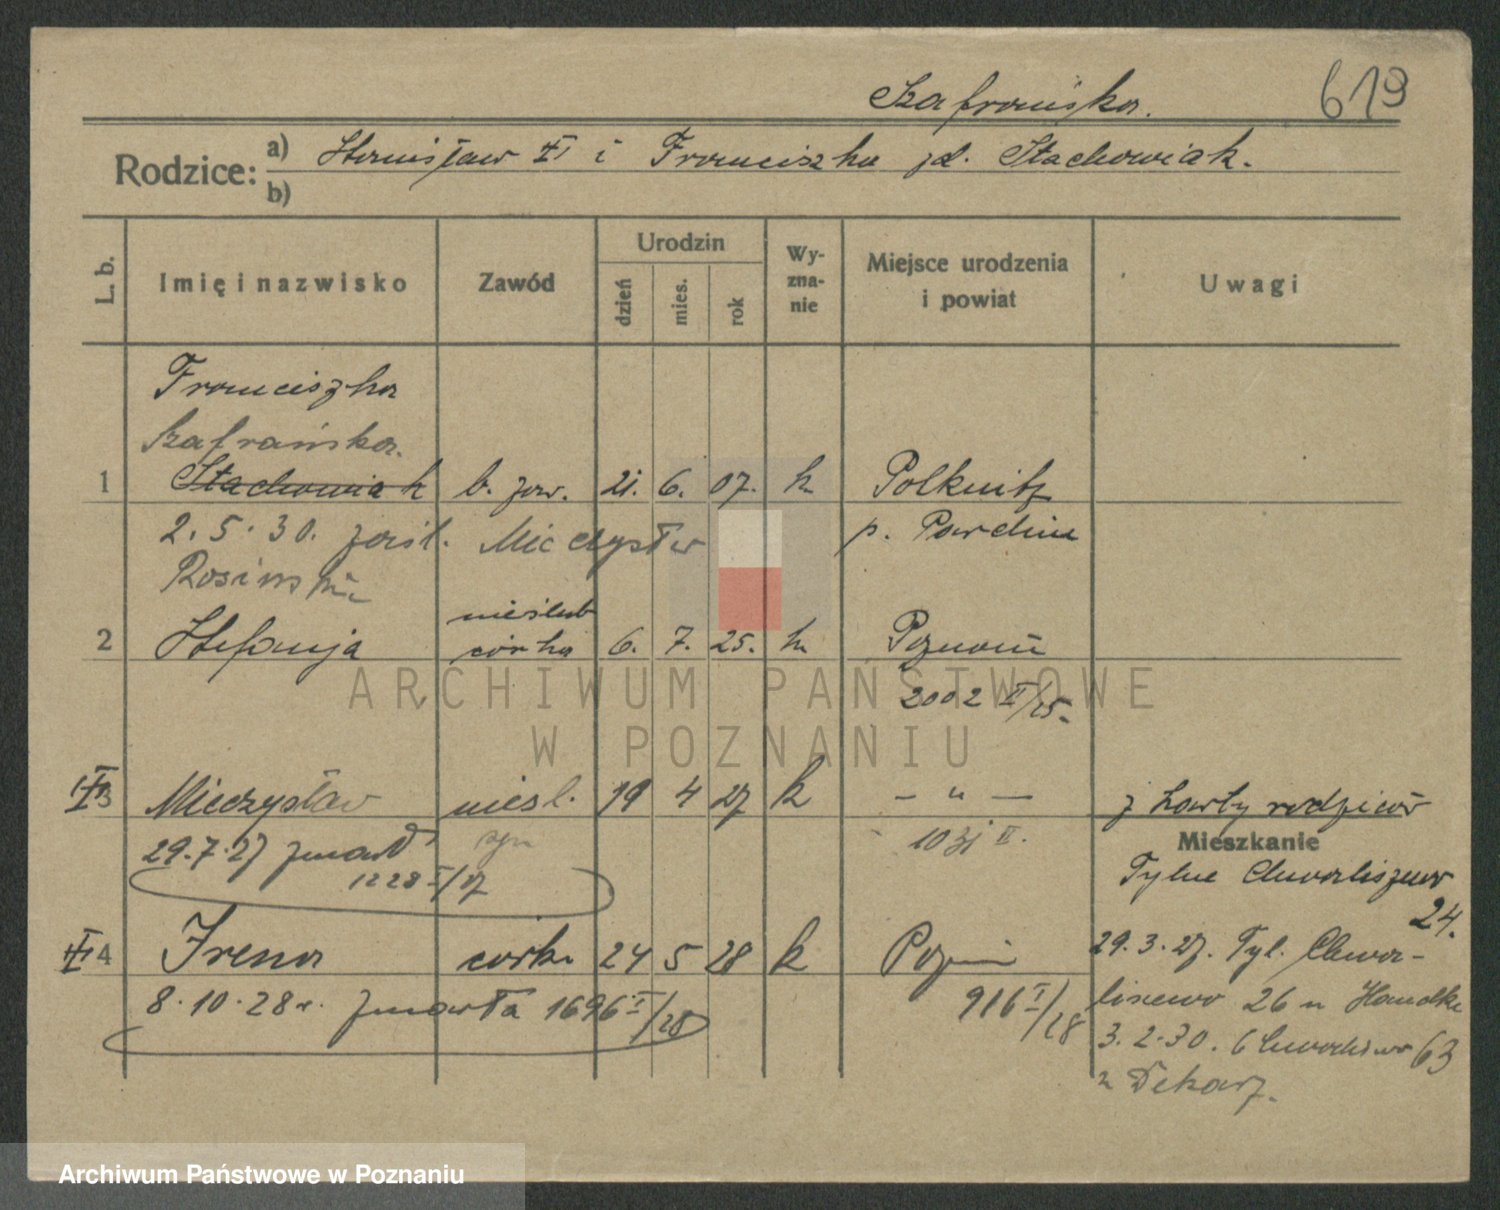 Szafrańska.
619
Rodzice: a) Stanisław II i Franciszka zd. Stachowiak.
b)
L. b.
Imię i nazwisko
Zawód
Urodzin
dzień
mies.
rok
Wy-
zna-
nie
Miejsce urodzenia
i powiat
Uwagi
Franciszka
Szafrańska.
1 Stachowiak b. zaw. 21. 6. 07. k Polknitz
2. 5. 30. zaśl. Mieczysław p.
nieślub
2 Stefanja córka 6. 7. 25. k. Poznań
2002 II/25.
3 Mieczysław nieśl. 19 4 27 k — " — z karty rodziców
syn 1031 II.
29.7.27 zmarł
1228 I/27
Mieszkanie
Tylne Chwaliszewo
24.
4 Irena córka 24 5 28 k Pozn
29. 3. 27. Tyl. Chwa-
8. 10. 28 r. zmarła 1696 I/28
916 I/28
liszewo 26 u
3. 2. 30. 63
u
ARCHIWUM PAŃSTWOWE
W POZNANIU
Archiwum Państwowe w Poznaniu